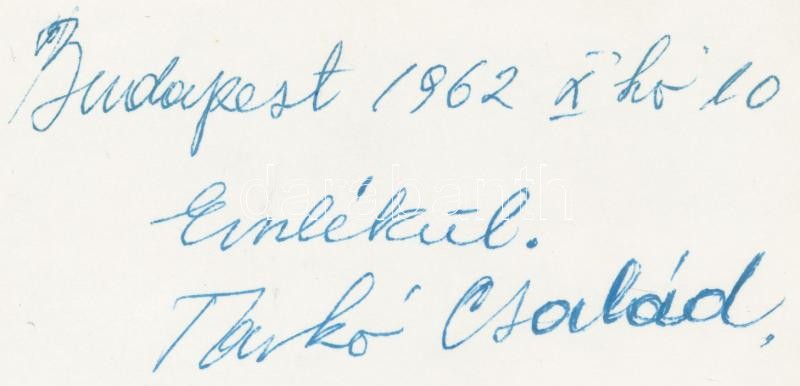 Budapest 1962 X hó 10
Emlékül.
Tarkó Család,
darabanth